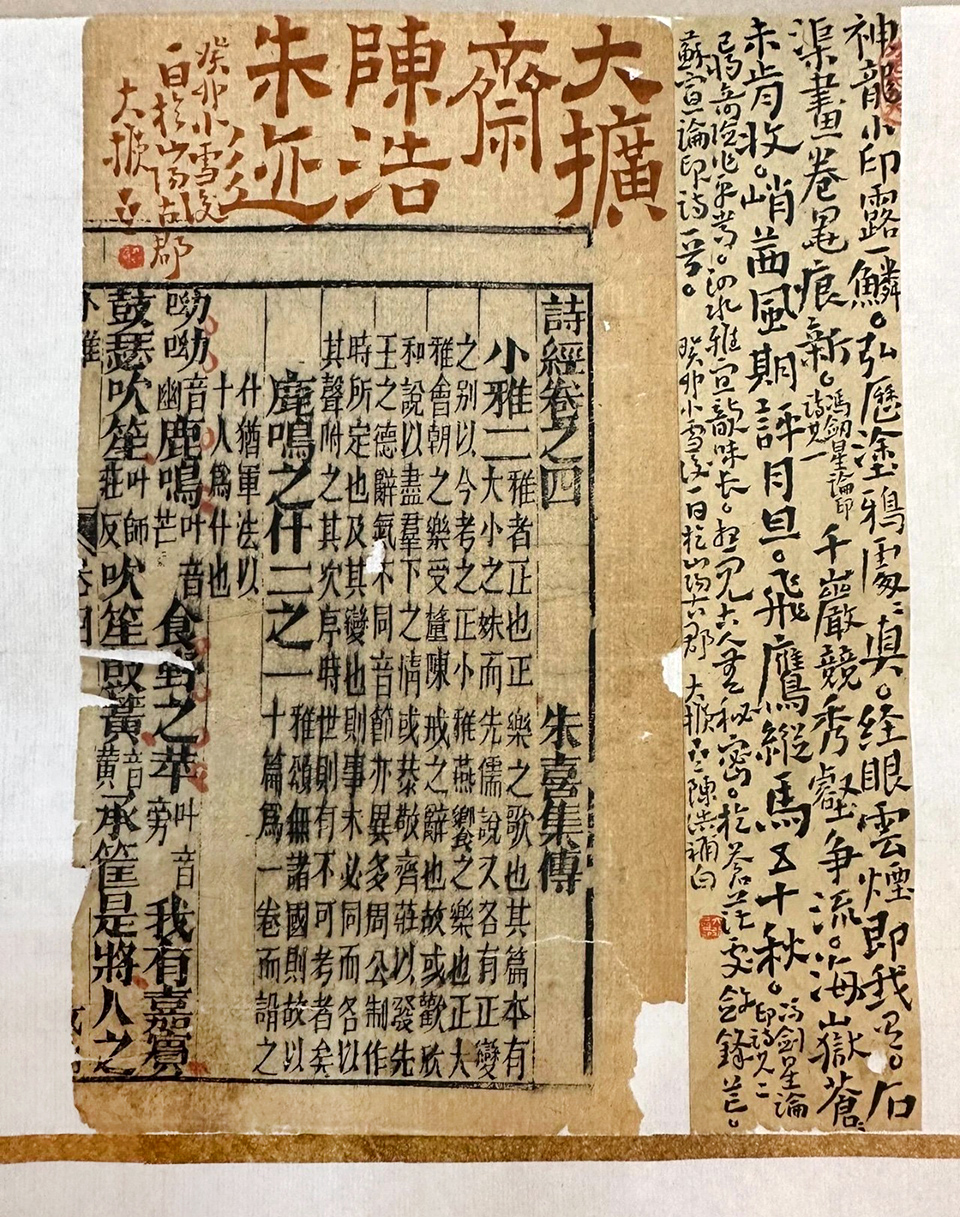 神龍小印露一鱗。弘歷塗鴉處處真。経眼雲煙即我有。石
渠畫卷墨痕新。馮劒星論印詩其一
千巖競秀壑争流。海嶽蒼蒼
未肯收。峭茜風期評月旦。飛鷹縱馬五十秋。馮剑星論印詩其二
已將奇險作平常。泗水雅宜韻味長。想見古人無秘密。於蒼茫處斂鋒芒。
蘇宣論印詩一首。癸卯小雪後一日於山陽古郡大擴齋陳浩補白
大擴
齋
陳浩
朱迹
癸卯小雪後
一日於山陽古郡
大擴
詩經卷之四
朱熹集傳
小雅二
雅者正也正樂之歌也其篇本有
大小之妹而先儒說又各有正變
之别以今考之正小雅燕饗之樂也正大
雅會朝之樂受釐陳戒之辭也故或歡欣
和說以盡羣下之情或恭敬齊莊以發先
王之德辭氣不同音節亦異多周公制作
時所定也及其變也則事未必同而各以
其聲附之其次序時世則有不可考者矣
鹿鳴之什二之一
雅頌無諸國則故以
十篇爲一卷而謂之
什猶軍法以
十人爲什也
呦呦音幽鹿鳴叶音芒食野之苹叶音旁我有嘉賔
鼓瑟吹笙叶師莊反吹笙鼓簧音黄承筐是將人之
小雅
卷四